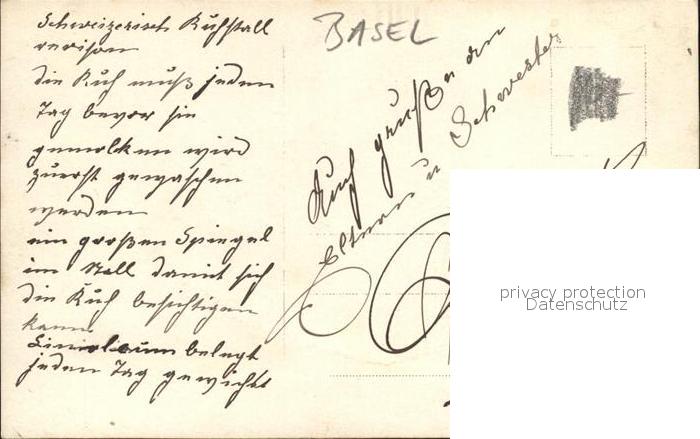 Schweizerisch Kuhstall
revison
die Kuh muß jeden
Tag bevor sie
gemolken wird
zuerst gewaschen
werden
ein großen Spiegel
im Stall damit sich
die Kuh besichtigen
kann
Linioleum belegt
jeden Tag gewichst
BASEL
Auch grüße an
Eltern u Schwester
privacy protection
Datenschutz